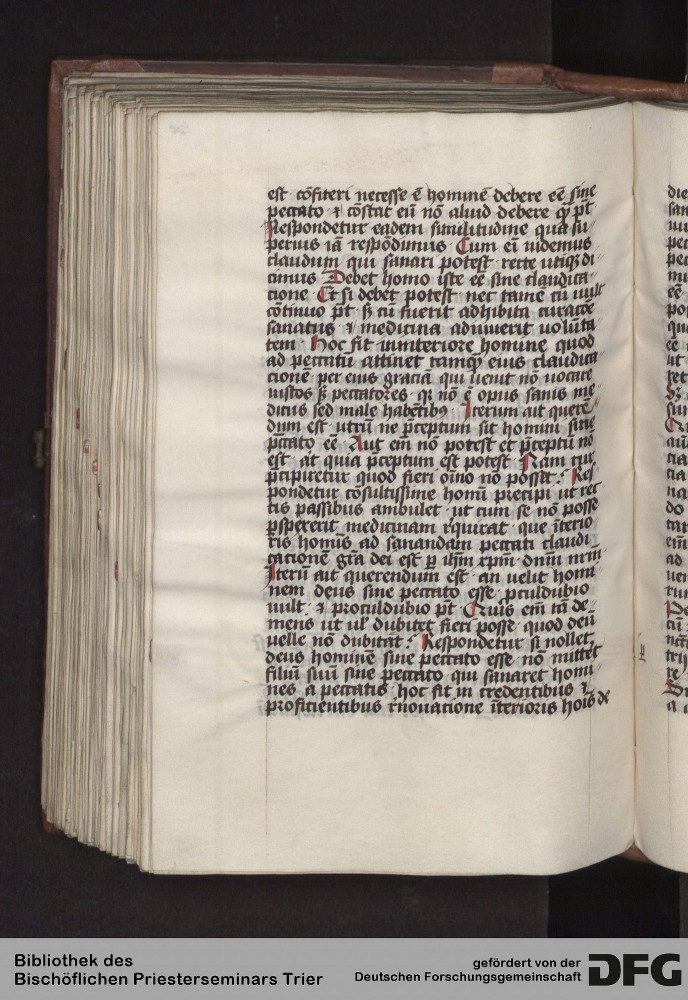 est cōfiteri necesse ē hominē debere eē sine
peccato · ⁊ cōstat eū nō aliud debere qͣꝫ pt̄
Respondetur eadem similitudine qua su
perius iā respōdimus Cum eī uidemus
claudum qui sanari potest · recte utiqꝫ di
cimus Debet homo iste eē sine claudica
cione Et si debet potest nec tamē cū uult
cōtinuo pt̄ · sꝫ cū fuerit adhibita curacōe
sanatus ⁊ medicina adiuuerit volūta
tem · Hoc fit ininteriore homine quod
ad peccatū attinet tamqͣꝫ eius claudica
cionē per eius graciā qui uenit nō uocare
iustos sꝫ peccatores · qꝛ nō ē opus sanis me
dicus sed male habētibꝰ · Iterum ait quere
dum est utrū ne p̄ceptum sit homini sine
pēcato eē · Aut em̄ nō potest et p̄ceptū nō
est at quia p̄ceptum est potest · Nam cur
p̄ciperetur quod fieri oīno nō posset · Res
pondetur cōsultissime homīi precipi ut rec
tis passibus ambulet · ut cum se nō posse
ꝑspexerit medicinam rͤquirat · que īterio
ris homīs ad sanandam peccati claudi
cacionē gr̄a dei est ꝑ ihm̄ xpm̄ · dnm̄ nr̄m
Iterū ait querendum est · an uelit homi
nem deus sine peccato esse · ꝓculdubio
uult · ⁊ proculdubio pt̄ Quis em̄ tā de
mens ut ul' dubitet fieri posse quod deū
uelle nō dubitat · Respondetur si nollet
deus hominē sine peccato esse nō mittēt
filiū suū sine peccato qui sanaret homi
nes a peccatis · hoc fit in credentibus ⁊
proficientibus rͤnouacione īterioris hoīs de
Bibliothek des
Bischöflichen Priesterseminars Trier
gefördert von der
Deutschen Forschungsgemeinschaft
DFG